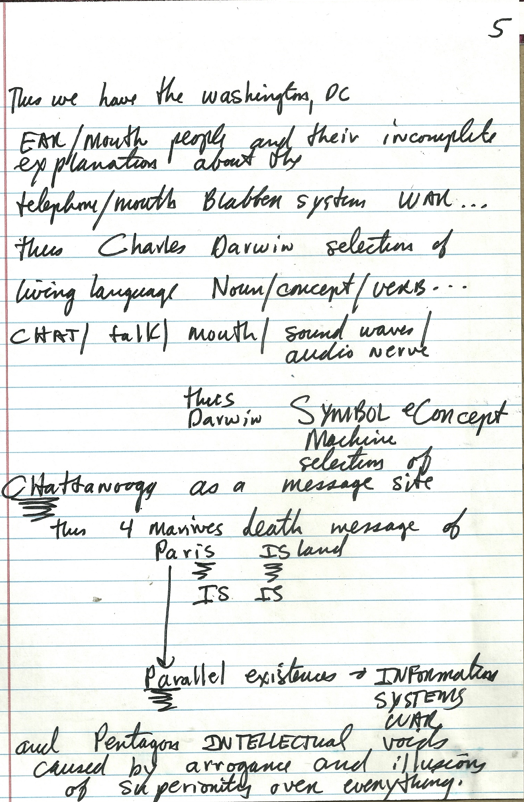 5
Thus we have the Washington, DC
EAR/Mouth people and their incomplete
explanation about the
telephone/mouth Blabben system WAR...
thus Charles Darwin selection of
living language Noun/concept/VERB...
CHAT/ talk/ mouth/ sound waves/
audio nerve
thus
Darwin SYMBOL eConcept
Machine
selection of
CHattanooga as a message site
thus 4 marines death message of
Paris ISland
IS IS
Parallel existences → INFormation
SYSTEMS
WAR
and Pentagon INTELLECTUAL voids
caused by arrogance and illusions
of superiority over everything.